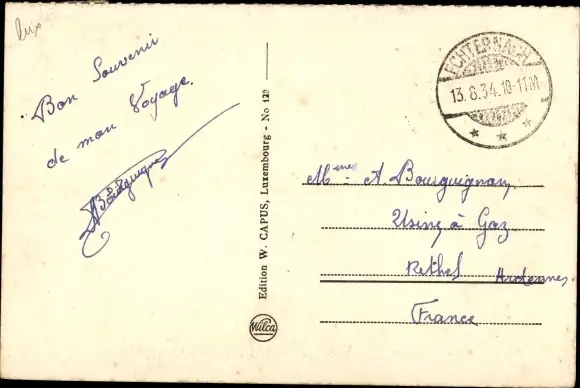 lux
Bon Souvenir
de mon Voyage.
ABourguignon
Edition W. CAPUS, Luxembourg - No 123
Wilca
ECHTERNACH
13.8.34.10-11
Mme A. Bourguignon,
Usine à Gaz
Rethel Ardennes
France